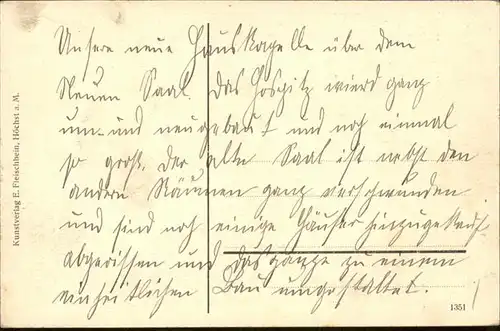 Unsere neue Hauskapelle über dem
Neuen Saal. Das Hospitz wierd ganz
um- und neugebaut und noch einmal
so groß. Der alte Saal ist nebst den
andern Räumen ganz verschwunden
und sind noch einige Häuser hinzugekauft
abgerissen und das ganze zu einem
einheitlichen Bau umgestaltet.
Kunstverlag E. Fleischbein, Höchst a. M.
1351